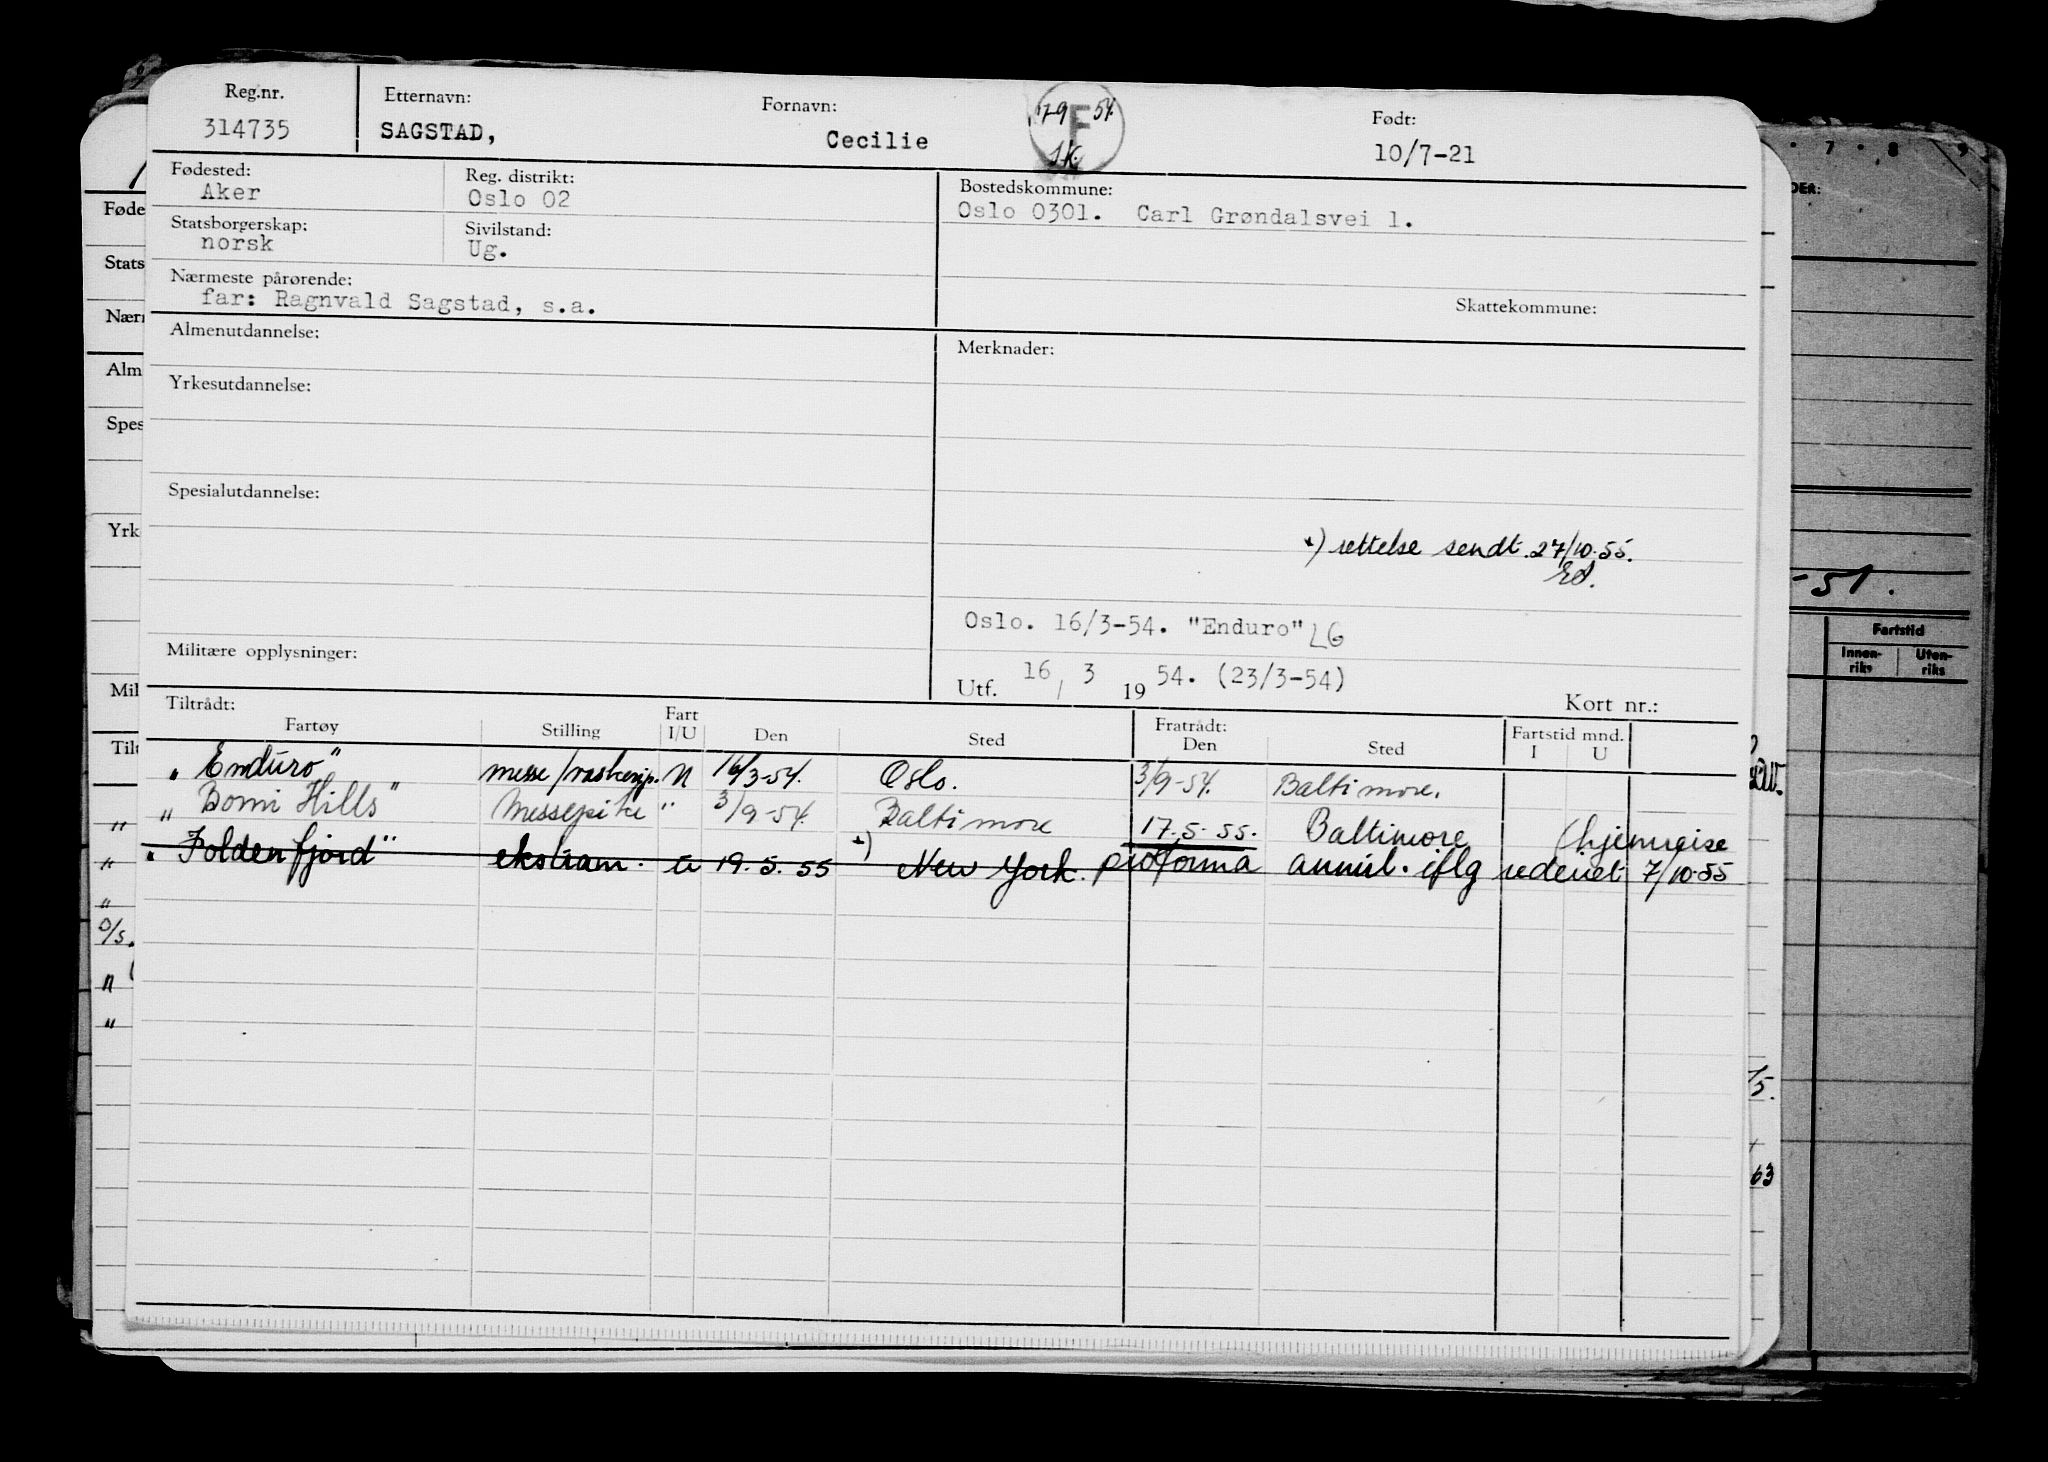 Reg.nr. Etternavn: Fornavn: Født:
314735 SAGSTAD, Cecilie 17-9 54. F S.K. 10/7-21
Fødested: Reg. distrikt: Bostedskommune:
Aker Oslo 02 Oslo 0301. Carl Grøndalsvei 1.
Statsborgerskap: Sivilstand:
norsk Ug.
Nærmeste pårørende: Skattekommune:
far: Ragnvald Sagstad, s.a.
Almenutdannelse: Merknader:
Yrkesutdannelse:
Spesialutdannelse:
*) rettelse sendt. 27/10.55.
Oslo. 16/3-54. "Enduro" LG
Militære opplysninger:
Utf. 16 / 3 19 54. (23/3-54)
Kort nr.:
Tiltrådt: Fartøy Stilling Fart I/U Den Sted Fratrådt: Den Sted Fartstid mnd. I U
"Enduro" messe/vaskepp. U 16/3-54. Oslo. 3/9-54. Baltimore.
" "Bomi Hills" Messepike " 3/9-54. Baltimore 17.5.55. Baltimore (hjemreise
"Foldenfjord" ekstram. U 19.5.55 *) New York. proforma annul. iflg rederiet 7/10-55
Føde
Stats
Nærr
Alm
Spes
Yrk
Mil
Tilt
7 8 9
DER:
-51.
Fartstid
Innen-riks Uten-riks
63